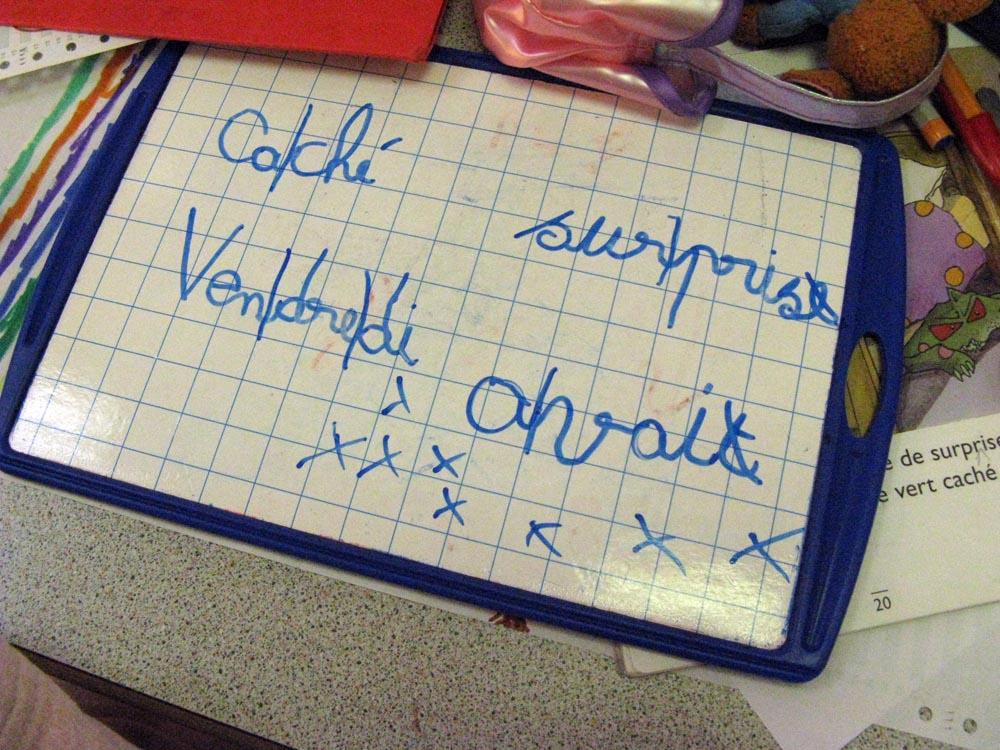 Ca/ché
sur/prise
Ven/dre/di
a/vait
x
x x x
x
x x x
e de surprise
e vert caché
20